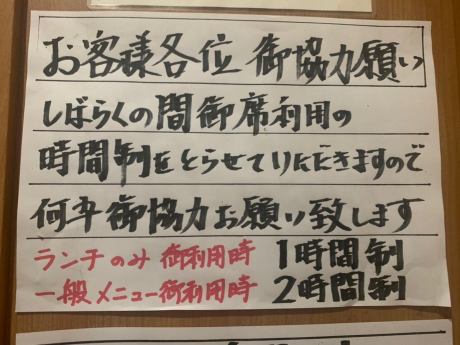 お客様各位 御協力願い
しばらくの間御席利用の
時間制をとらせていただきますので
何卒御協力お願い致します
ランチのみ御利用時 1時間制
一般メニュー御利用時 2時間制